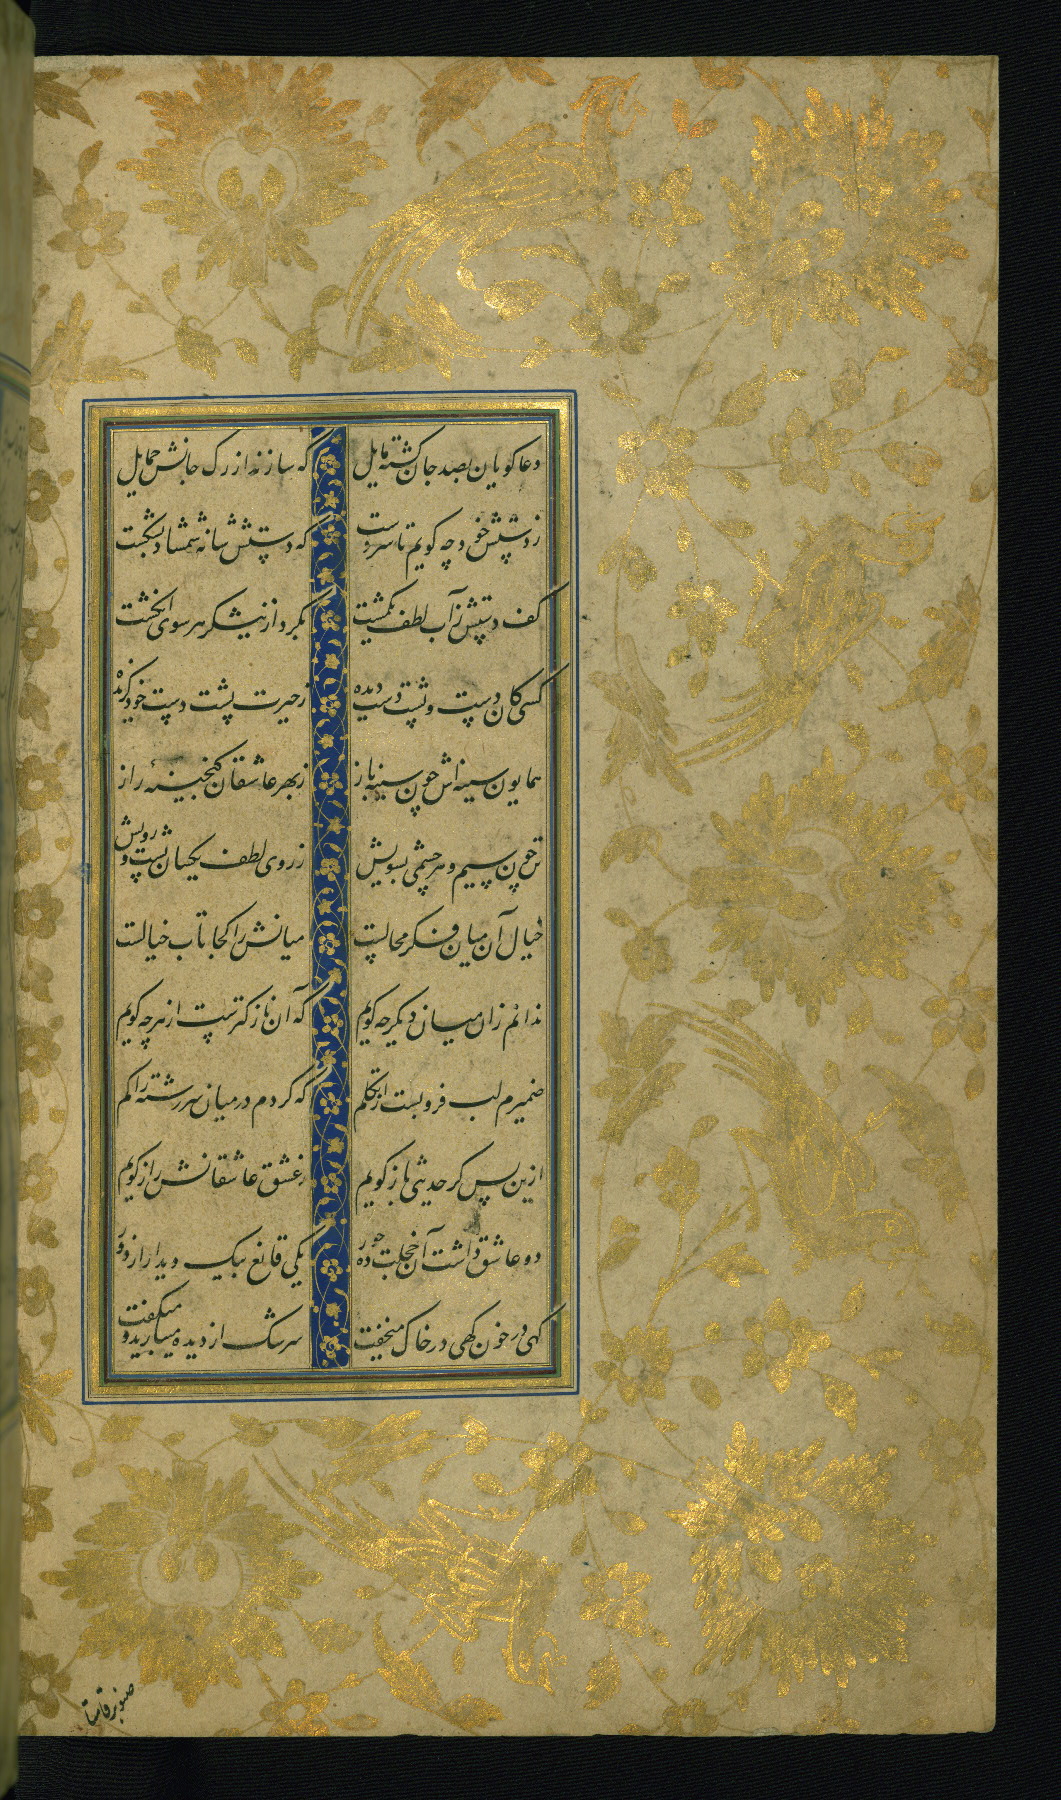 دعا کویان بصد جان کشته مایل که سازند از رک جانش حمایل
ز دستش خود چه کویم تا سر دست که دستش شانه شمشاد بشکست
کف دستش ز آب لطف نمکشت بکرد از نیشکر هر سوی انکشت
کسی کان دست و پشت دست دیده ز حیرت پشت دست خود کزیده
همایون سینه اش چون سینه باز ز بهر عاشقان کنجینهٔ راز
تن چون سیم و هر چشمی بسویش ز روی لطف یکسان پشت و رویش
خیال آن میان فکر محالست میانش را کجا تاب خیالست
ندانم زان میان دیکر چه کویم که آن نازکترست از هر چه کویم
ضمیرم لب فرو بست از تکلم که کردم در میان سررشته را کم
ازین پس کر حدیثی باز کویم ز عشق عاشقانش راز کویم
دو عاشق داشت آن خجلت ده حور یکی قانع بیک دیدار از دور
کهی در خون کهی در خاک میخفت سرشک از دیده میبارید و میکفت
صنوبر قامتا